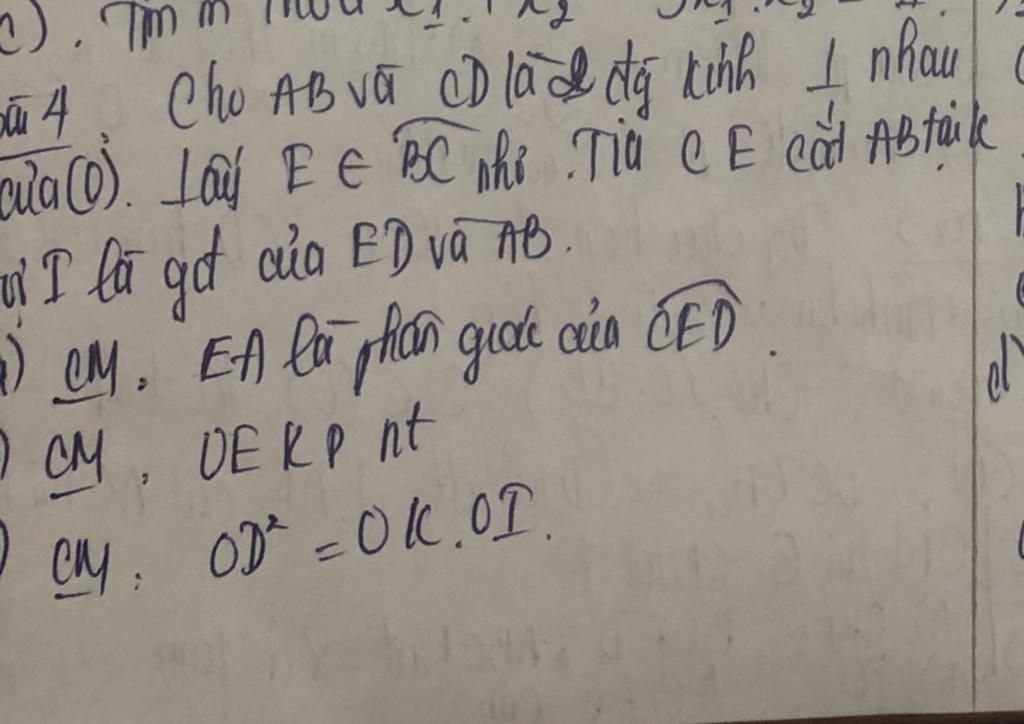 c). Tìm m
Bài 4. Cho AB và CD là 2 đg kính ⊥ nhau
của (O). Lấy E ∈ BC nhỏ. Tia CE cắt AB tại K
I là gđ của ED và AB.
) CM: EA là phân giác của CED.
) CM: OEKD nt
) CM: OD² = OK.OI.
d)